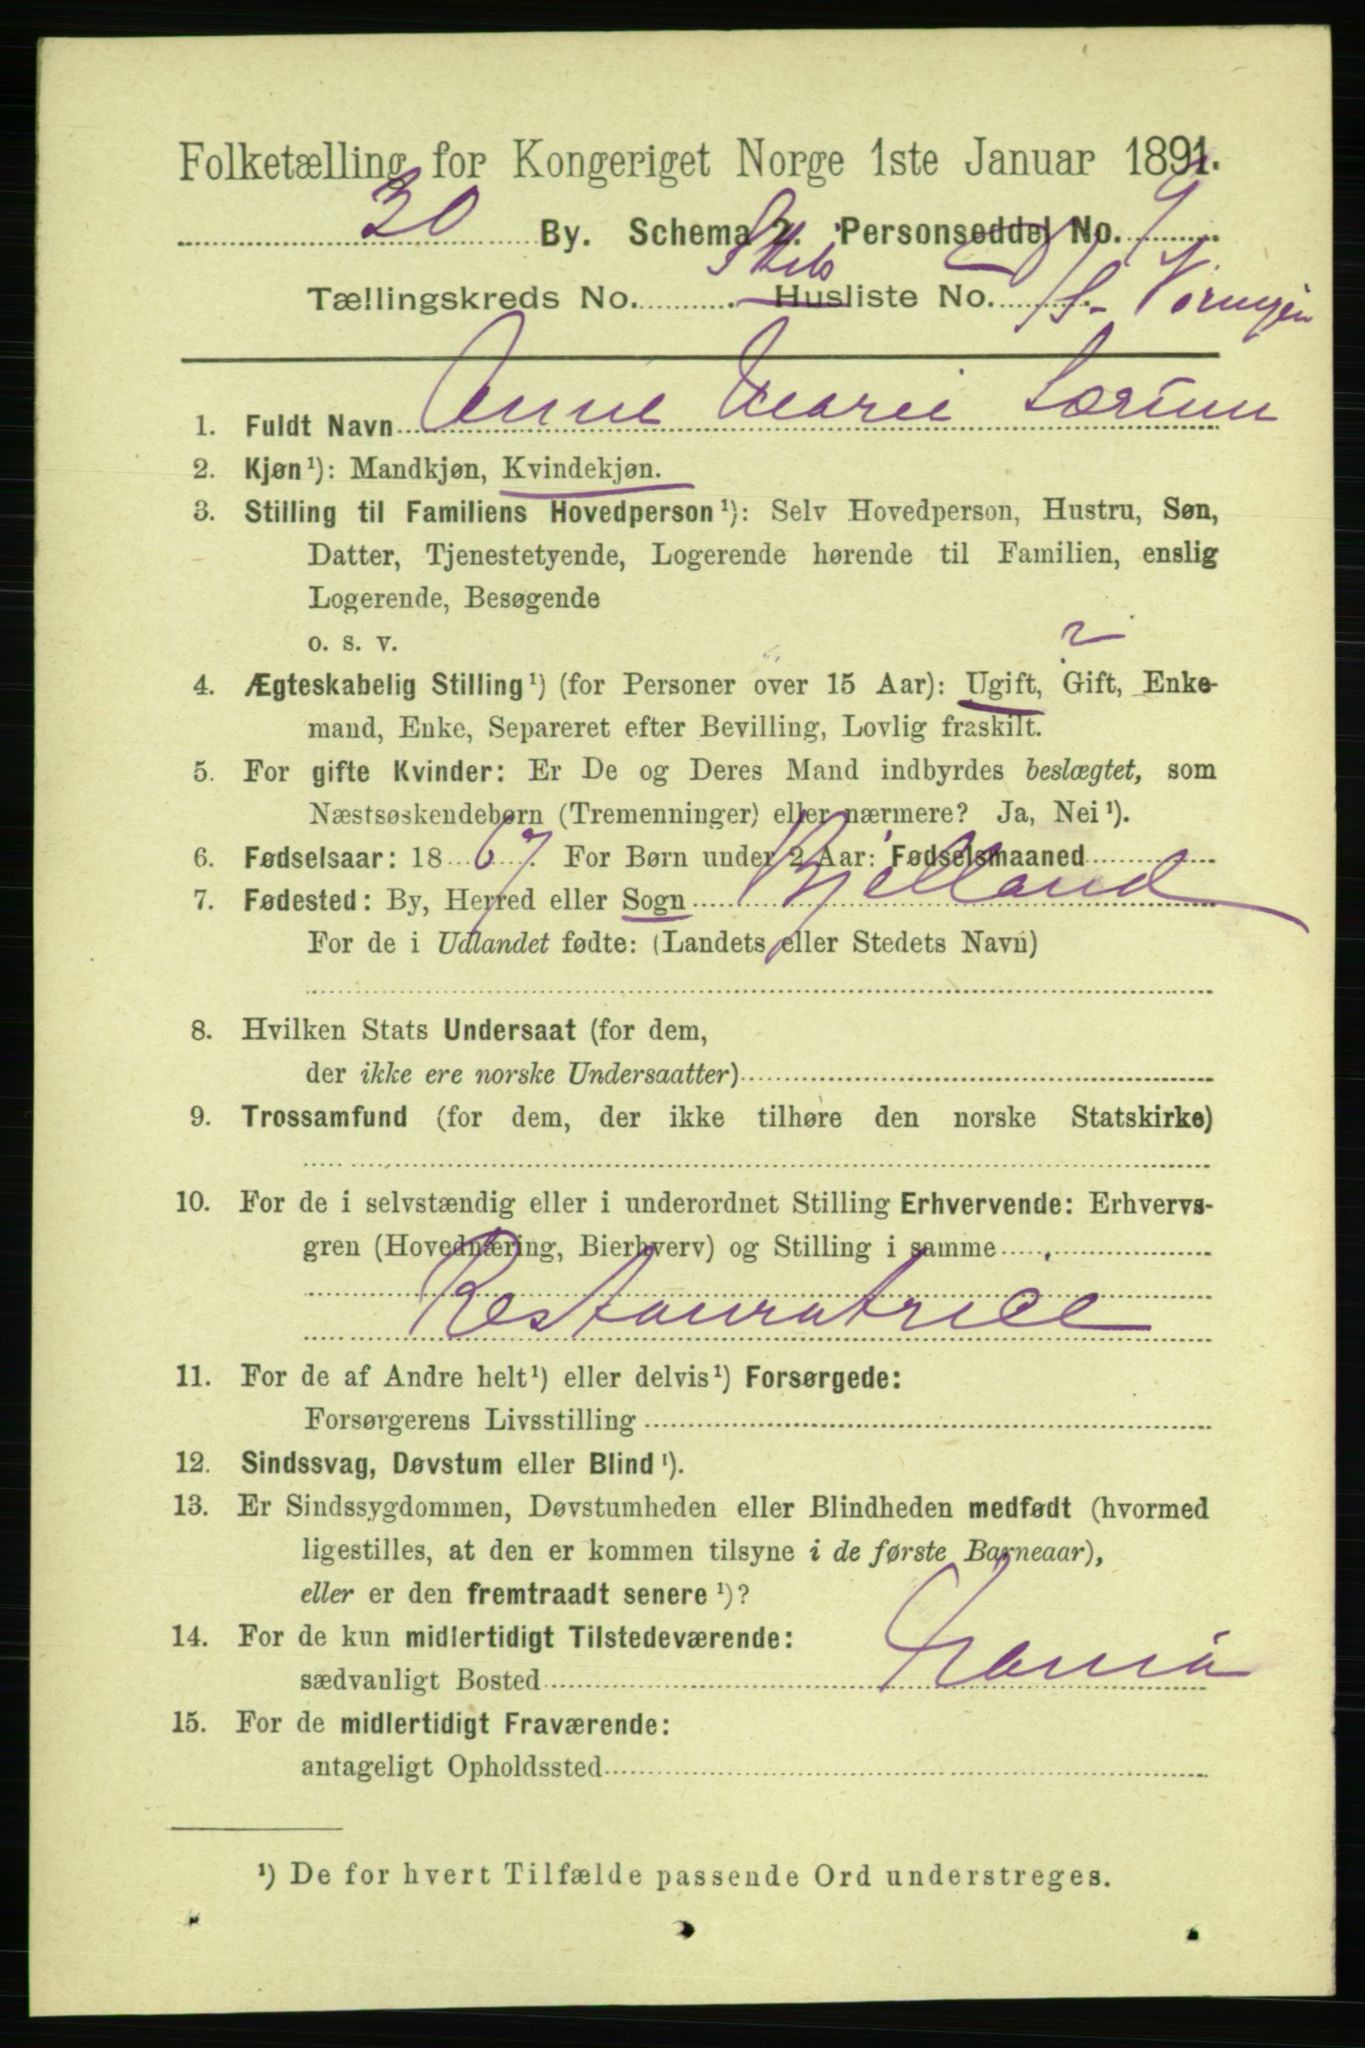 Folketælling for Kongeriget Norge 1ste Januar 1891.
30 By. Schema 2. Personseddel No. 9
Tællingskreds No. Skibs Husliste No.
1. Fuldt Navn Anne Marie
2. Kjøn¹): Mandkjøn, Kvindekjøn.
3. Stilling til Familiens Hovedperson¹): Selv Hovedperson, Hustru, Søn,
Datter, Tjenestetyende, Logerende hørende til Familien, enslig
Logerende, Besøgende
o. s. v.
2
4. Ægteskabelig Stilling¹) (for Personer over 15 Aar): Ugift, Gift, Enke-
mand, Enke, Separeret efter Bevilling, Lovlig fraskilt.
5. For gifte Kvinder: Er De og Deres Mand indbyrdes beslægtet, som
Næstsøskendebørn (Tremenninger) eller nærmere? Ja, Nei¹).
6. Fødselsaar: 1867. For Børn under 2 Aar: Fødselsmaaned
7. Fødested: By, Herred eller Sogn Bjelland
For de i Udlandet fødte: (Landets eller Stedets Navn)
8. Hvilken Stats Undersaat (for dem,
der ikke ere norske Undersaatter)
9. Trossamfund (for dem, der ikke tilhøre den norske Statskirke)
10. For de i selvstændig eller i underordnet Stilling Erhvervende: Erhvervs-
gren (Hovednæring, Bierhverv) og Stilling i samme
Restauratrice
11. For de af Andre helt¹) eller delvis¹) Forsørgede:
Forsørgerens Livsstilling
12. Sindssvag, Døvstum eller Blind¹).
13. Er Sindssygdommen, Døvstumheden eller Blindheden medfødt (hvormed
ligestilles, at den er kommen tilsyne i de første Barneaar),
eller er den fremtraadt senere¹)?
14. For de kun midlertidigt Tilstedeværende:
sædvanligt Bosted
15. For de midlertidigt Fraværende:
antageligt Opholdssted
¹) De for hvert Tilfælde passende Ord understreges.